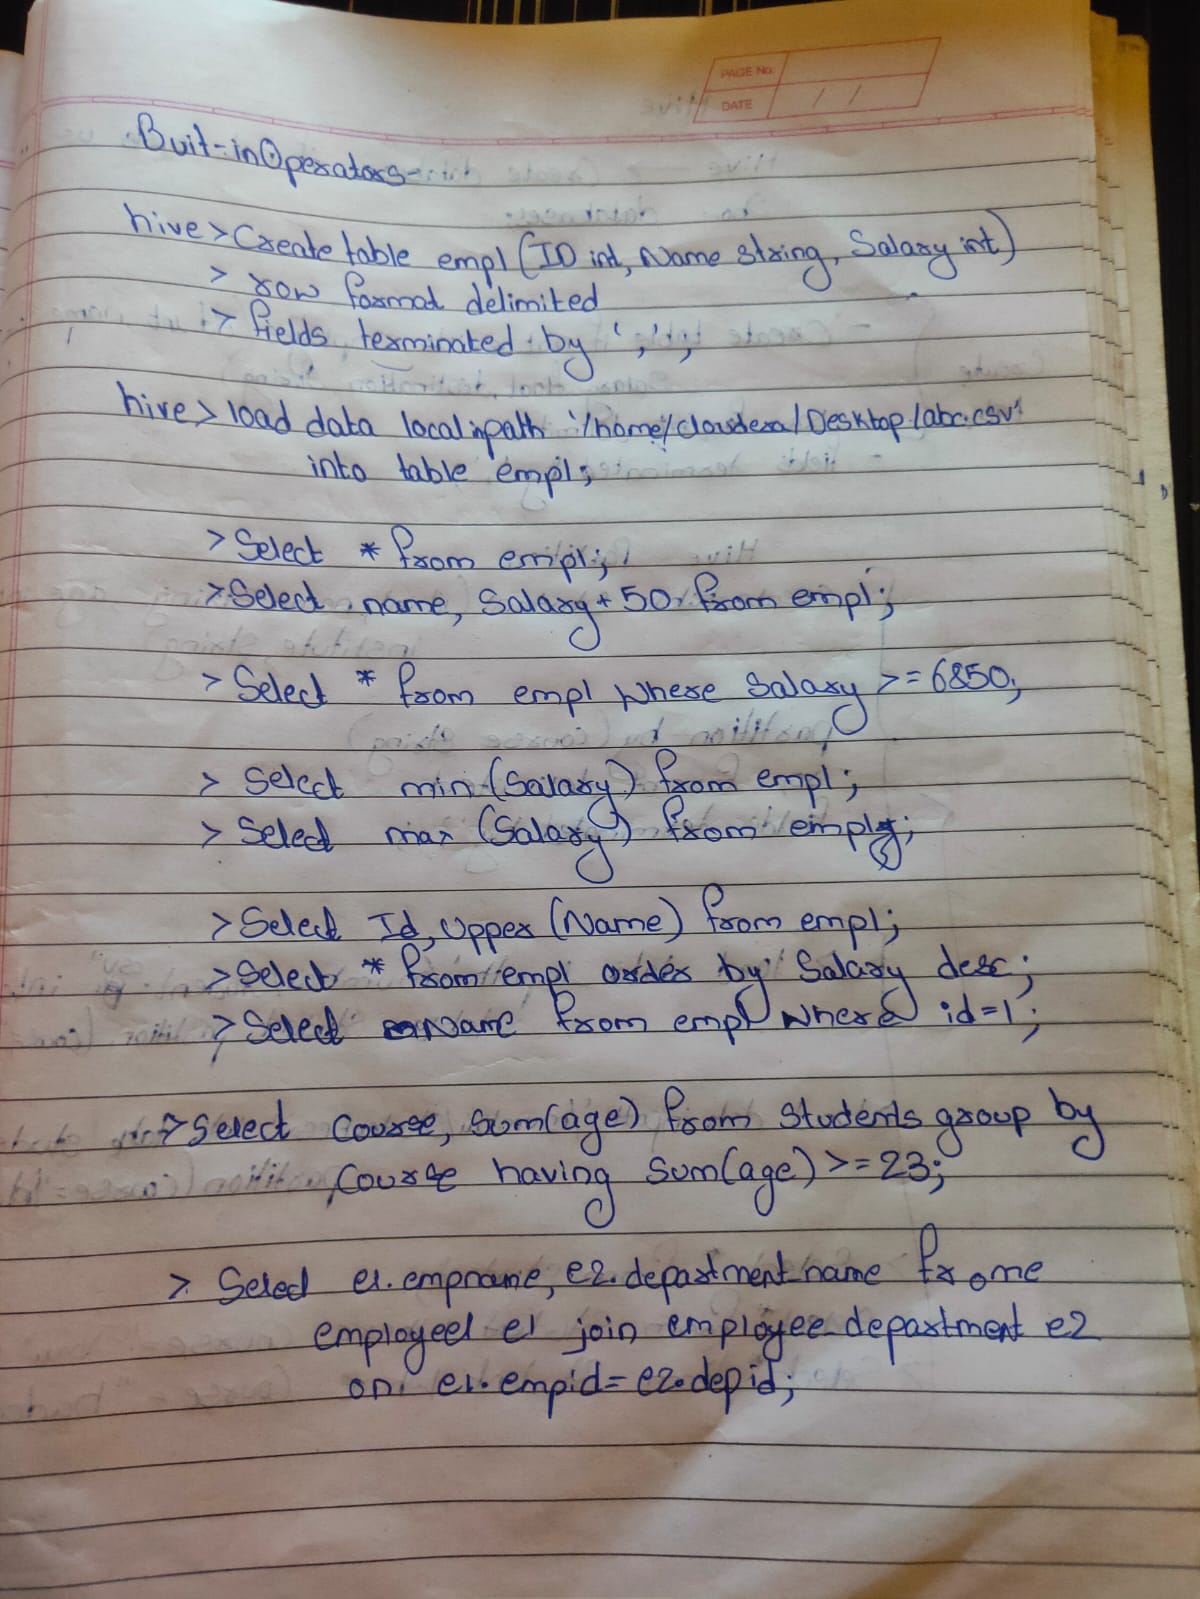 PAGE No.
DATE / /
Buit-inOperators-
hive > Create table empl (ID int, Name string, Salary int)
> row format delimited
> fields terminated by ',';
hive > load data local inpath '/home/cloudera/Desktop/abc.csv'
into table empl;
> Select * from empl;
> Select name, Salary + 50 from empl;
> Select * from empl where Salary >= 6850;
> Select min (Salary) from empl;
> Select max (Salary) from empl;
> Select Id, Upper (Name) from empl;
> Select * from empl order by Salary desc;
> Select Name from empl where id=1;
> Select Course, Sum(age) from Students group by
Course having Sum(age) >= 23;
> Select e1.empname, e2.department_name frome
employee1 e1 join employee_department e2
on e1.empid = e2.depid;